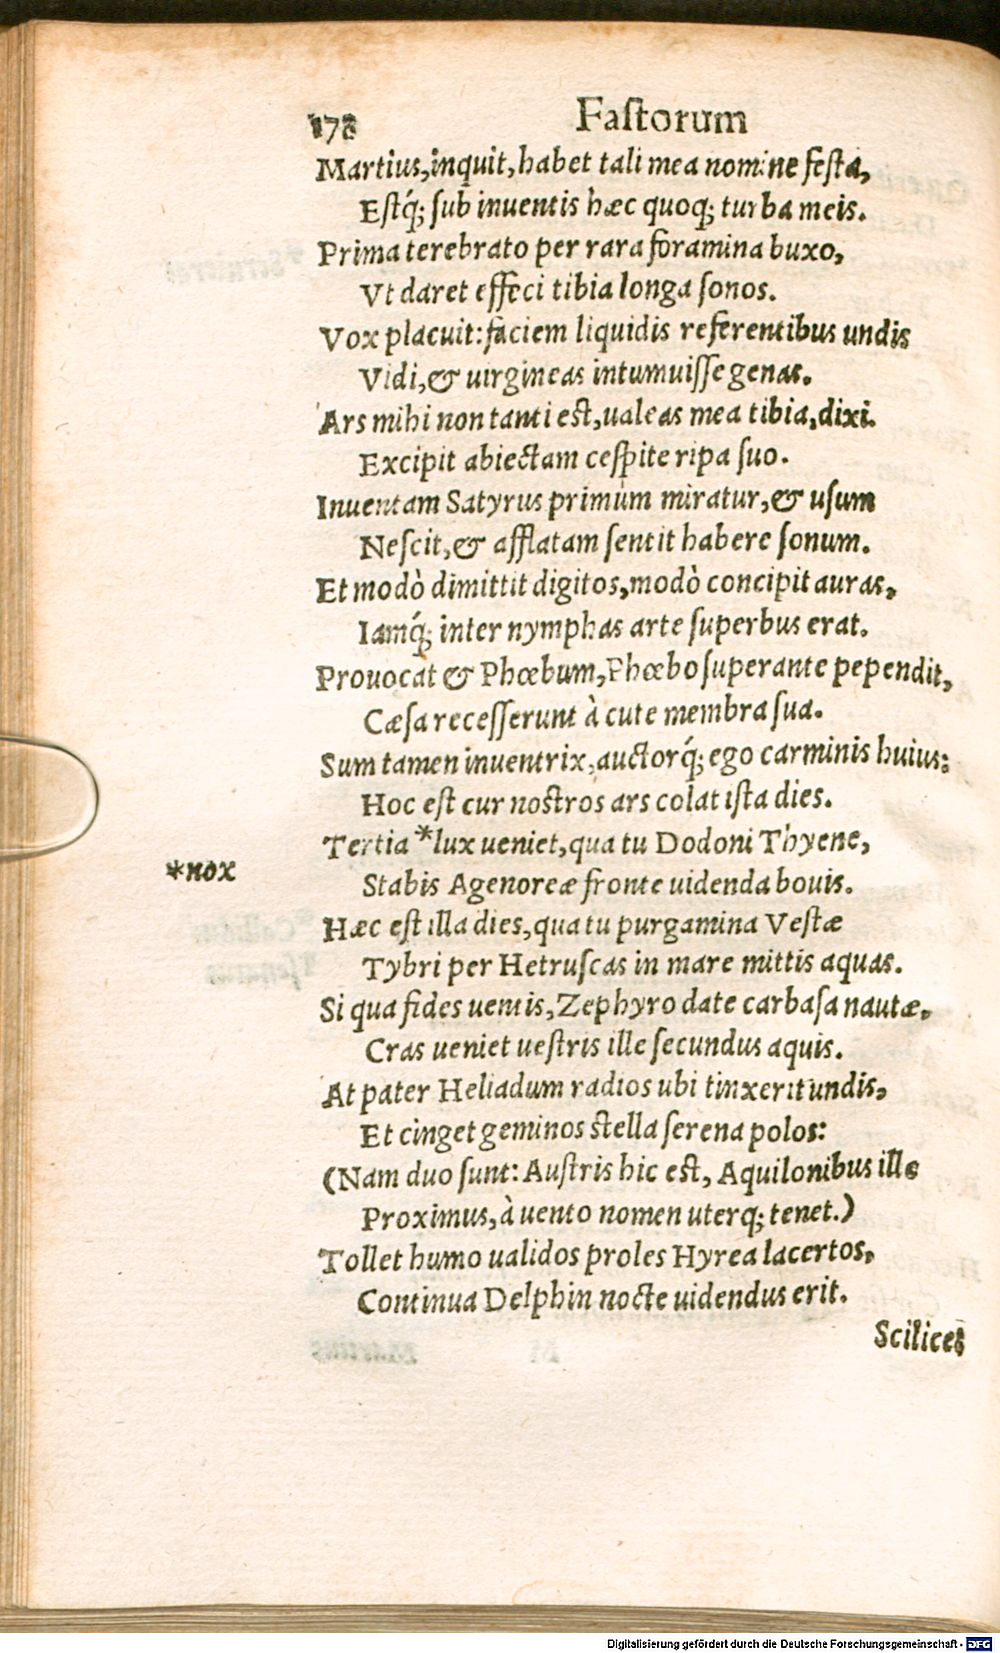 178 Faſtorum
Martius,inquit,habet tali mea nomine feſta,
Eſtq́; ſub inuentis hæc quoq; turba meis.
Prima terebrato per rara foramina buxo,
Vt daret effeci tibia longa ſonos.
Vox placuit:faciem liquidis referentibus undis
Vidi,& uirgineas intumuiſſe genas.
Ars mihi non tanti eſt,ualeas mea tibia,dixi.
Excipit abiectam ceſpite ripa ſuo.
Inuentam Satyrus primùm miratur,& uſum
Neſcit,& afflatam ſentit habere ſonum.
Et modò dimittit digitos,modò concipit auras,
Iamq́; inter nymphas arte ſuperbus erat.
Prouocat & Phœbum,Phœbo ſuperante pependit,
Cæſa receſſerunt à cute membra ſua.
Sum tamen inuentrix,auctorq́; ego carminis huius:
Hoc eſt cur noſtros ars colat iſta dies.
Tertia *lux ueniet,qua tu Dodoni Thyene,
*nox
Stabis Agenoreæ fronte uidenda bouis.
Hæc eſt illa dies,qua tu purgamina Veſtæ
Tybri per Hetruſcas in mare mittis aquas.
Si qua fides uentis,Zephyro date carbaſa nautæ,
Cras ueniet ueſtris ille ſecundus aquis.
At pater Heliadum radios ubi tinxerit undis,
Et cinget geminos ſtella ſerena polos:
(Nam duo ſunt: Auſtris hic eſt, Aquilonibus ille
Proximus,à uento nomen uterq; tenet.)
Tollet humo ualidos proles Hyrea lacertos,
Continua Delphin nocte uidendus erit.
Scilicet
Digitalisierung gefördert durch die Deutsche Forschungsgemeinschaft - DFG